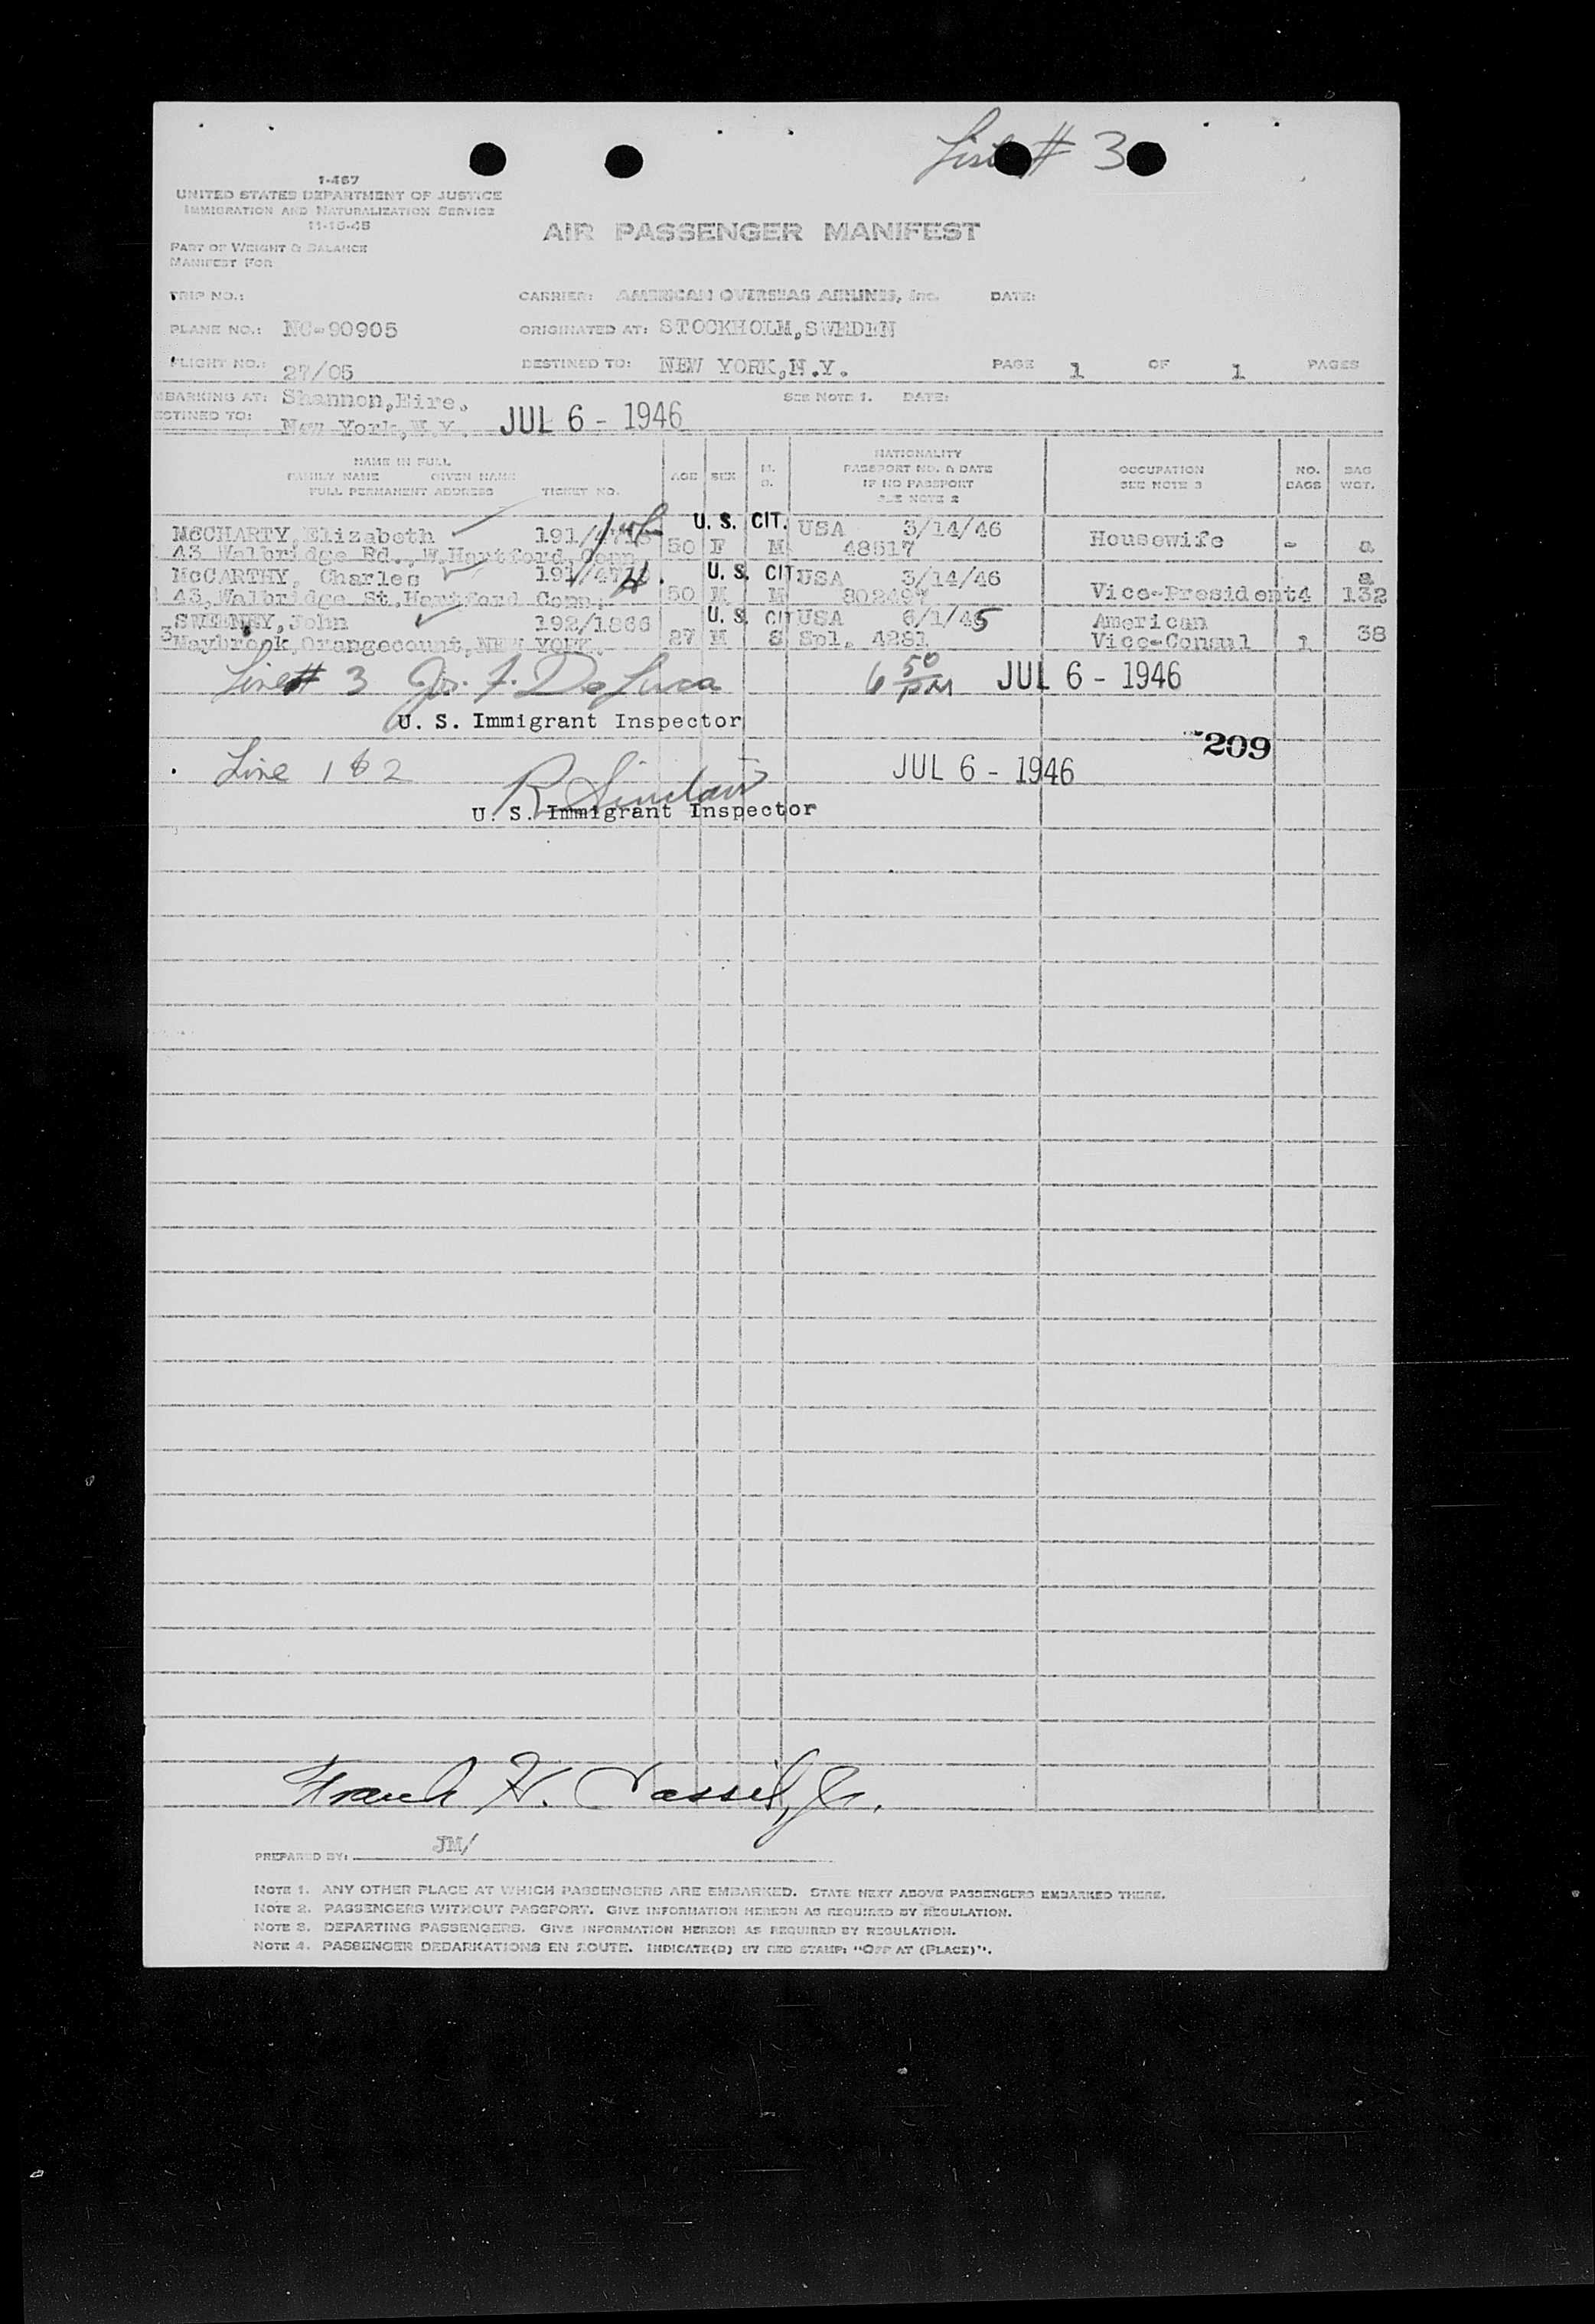 List # 3
1-467
UNITED STATES DEPARTMENT OF JUSTICE
IMMIGRATION AND NATURALIZATION SERVICE
11-15-45
AIR PASSENGER MANIFEST
PART OF WEIGHT & BALANCE
MANIFEST FOR
TRIP NO.: CARRIER: AMERICAN OVERSEAS AIRLINES, Inc. DATE:
PLANE NO.: NC-90905 ORIGINATED AT: STOCKHOLM,SWEDEN
FLIGHT NO.: 27/05 DESTINED TO: NEW YORK,N.Y. PAGE 1 OF 1 PAGES
EMBARKING AT: Shannon,Eire. SEE NOTE 1. DATE:
DESTINED TO: New York,N.Y. JUL 6 - 1946
NAME IN FULL
FAMILY NAME GIVEN NAME
FULL PERMANENT ADDRESS TICKET NO. AGE SEX M. S. NATIONALITY PASSPORT NO. & DATE IF NO PASSPORT SEE NOTE 2 OCCUPATION SEE NOTE 3 NO. BAGS BAG WGT.
McCHARTY,Elizabeth 191/ U. S. CIT. USA 3/14/46
43 Walbridge Rd., W.Hartford Conn 50 F M 48517 Housewife -
McCARTHY, Charles 191/ U. S. CIT USA 3/14/46
43,Walbridge St,Hartford Conn. 50 M M 802497 Vice-President 4 132
SWEENEY,John 192/1866 U. S. CIT USA 6/1/45 American
3 Maybrook,Orangecount,NEW YORK. 27 M S Spl. 4281 Vice-Consul 1 38
Line # 3 Jos. F. DeLuca 6 50 PM JUL 6 - 1946
U. S. Immigrant Inspector
209
Line 1 & 2 R Sinclair JUL 6 - 1946
U. S. Immigrant Inspector
Frank H. Cassil, Jr.
PREPARED BY: JM/
NOTE 1. ANY OTHER PLACE AT WHICH PASSENGERS ARE EMBARKED. STATE NEXT ABOVE PASSENGERS EMBARKED THERE.
NOTE 2. PASSENGERS WITHOUT PASSPORT. GIVE INFORMATION HEREON AS REQUIRED BY REGULATION.
NOTE 3. DEPARTING PASSENGERS. GIVE INFORMATION HEREON AS REQUIRED BY REGULATION.
NOTE 4. PASSENGER DEBARKATIONS EN ROUTE. INDICATE(D) BY RED STAMP: "OFF AT (PLACE)".